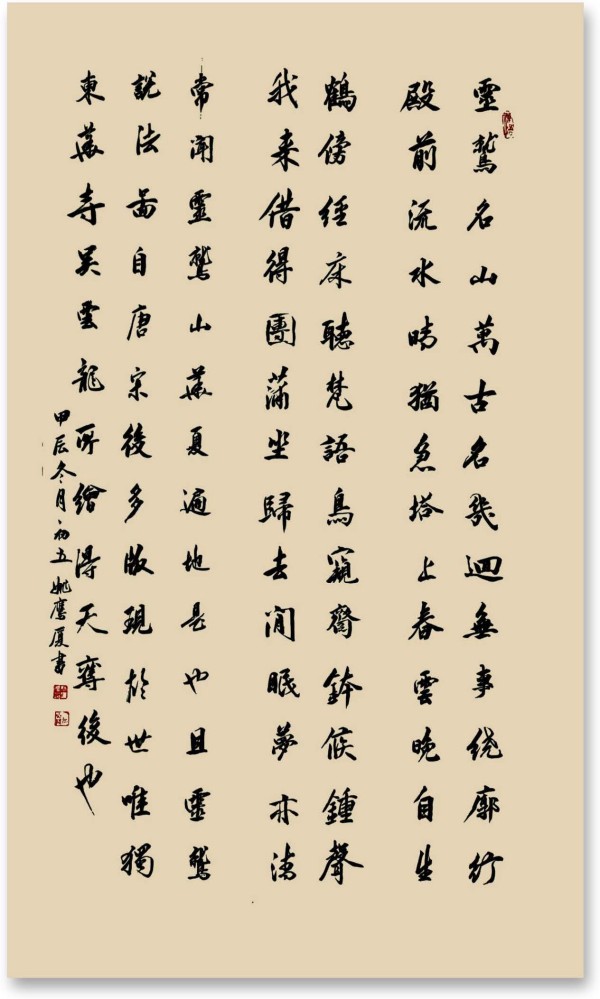 靈鷲名山萬古名幾迴無事绕廊行
殿前流水晴猶急塔上春雲晚自生
鶴傍經床聽梵語鳥窺齋鉢候鍾聲
我来借得團蒲坐歸去閒眠夢亦清
常聞靈鷲山華夏遍地是也且靈鷲
説法啚自唐宋後多版現於世唯獨
東華寺吴雲龍所繪得天奪後也
甲辰冬月初五姚鹰厦書